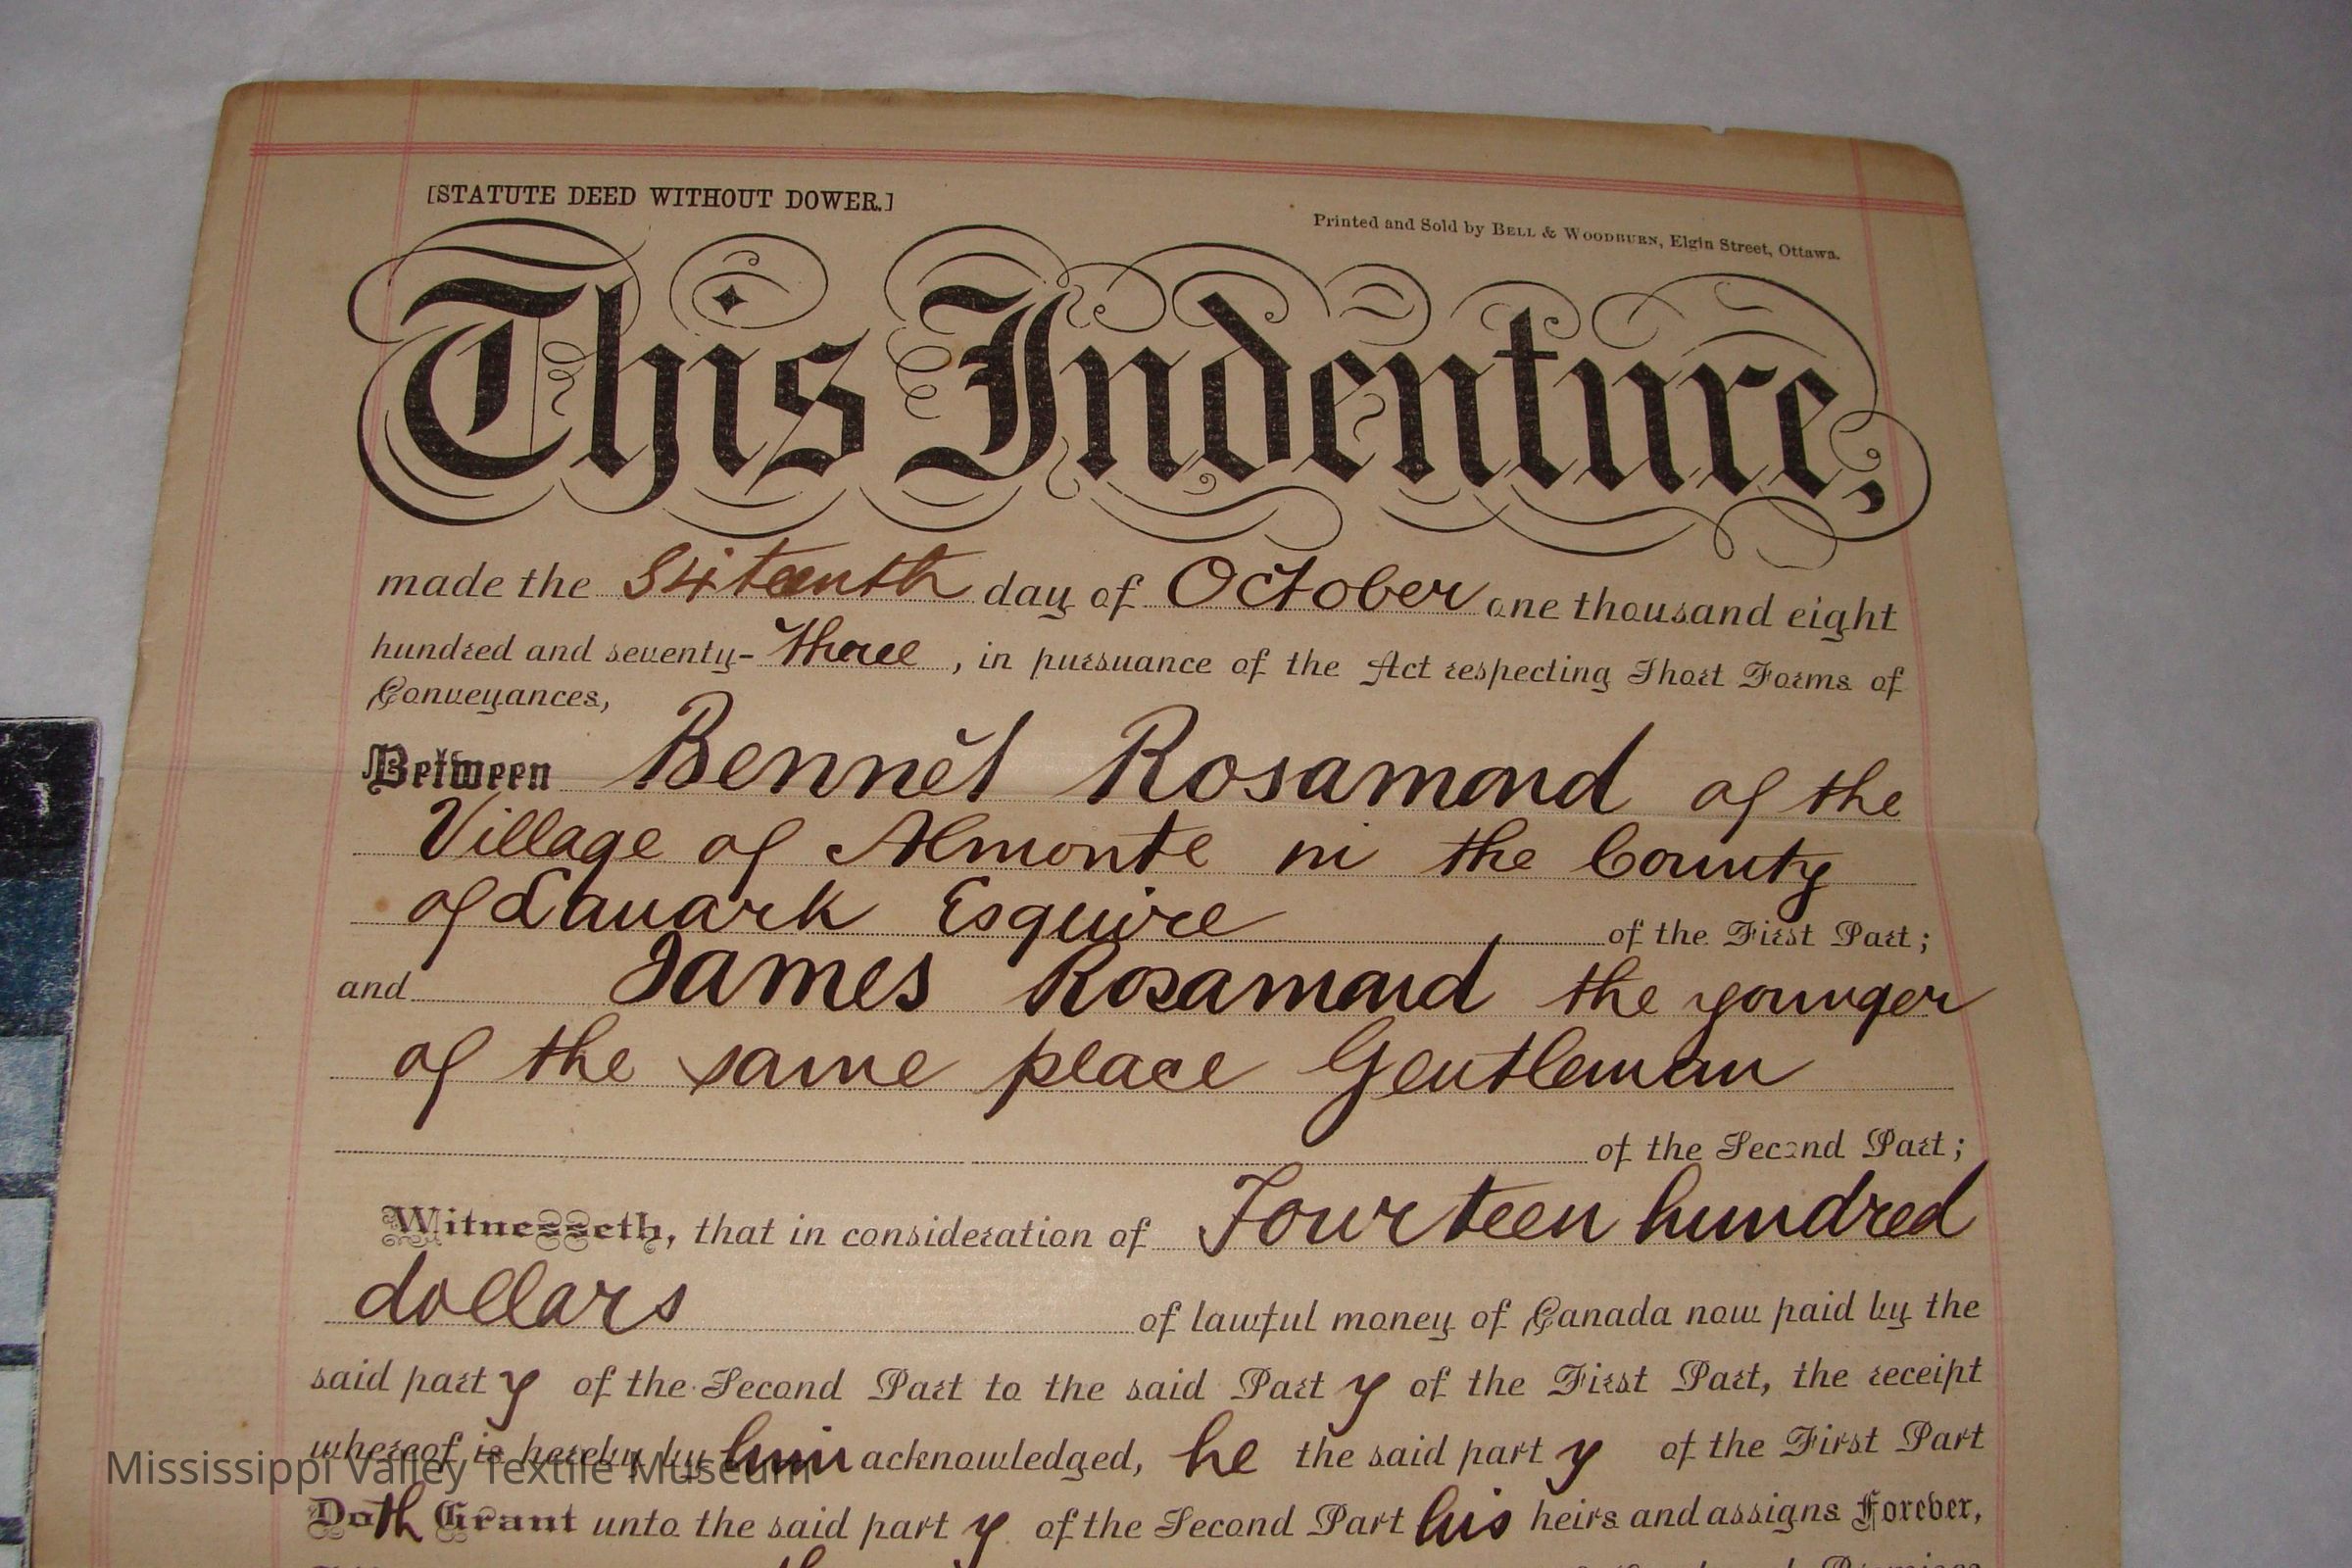 [STATUTE DEED WITHOUT DOWER.]
Printed and Sold by BELL & WOODBURN, Elgin Street, Ottawa.
This Indenture,
made the Sixteenth day of October one thousand eight
hundred and seventy-three, in pursuance of the Act respecting Short Forms of
Conveyances,
Between Bennet Rosamond of the
Village of Almonte in the County
of Lanark Esquire of the First Part;
and James Rosamond the younger
of the same place Gentleman
of the Second Part;
Witnesseth, that in consideration of Fourteen hundred
dollars of lawful money of Canada now paid by the
said party of the Second Part to the said Party of the First Part, the receipt
whereof is hereby by him acknowledged, he the said party of the First Part
Mississippi Valley Textile Museum
Doth Grant unto the said party of the Second Part his heirs and assigns Forever,